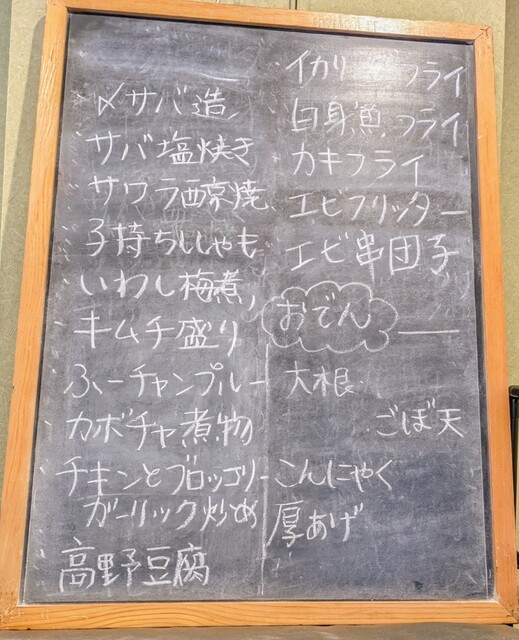 〆サバ造り
サバ塩焼き
サワラ西京焼
子持ちししゃも
いわし梅煮
キムチ盛り
ふーチャンプルー
カボチャ煮物
チキンとブロッコリー
ガーリック炒め
高野豆腐
イカリングフライ
白身魚フライ
カキフライ
エビフリッター
エビ串団子
おでん
大根
ごぼ天
こんにゃく
厚あげ